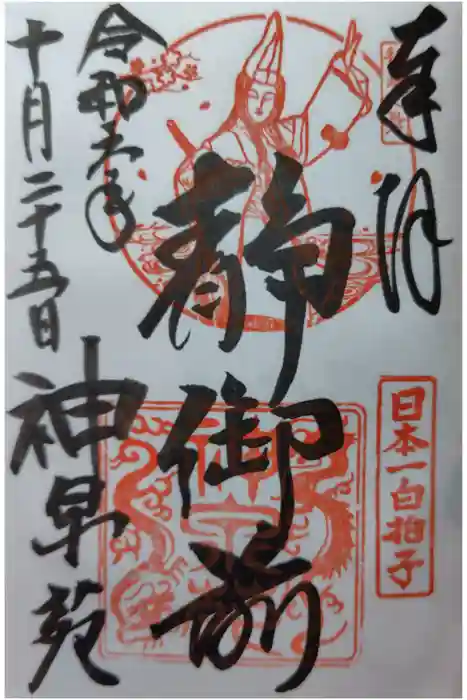 奉拝
日本一白拍子
静御前
令和六年
十月二十五日
神泉苑